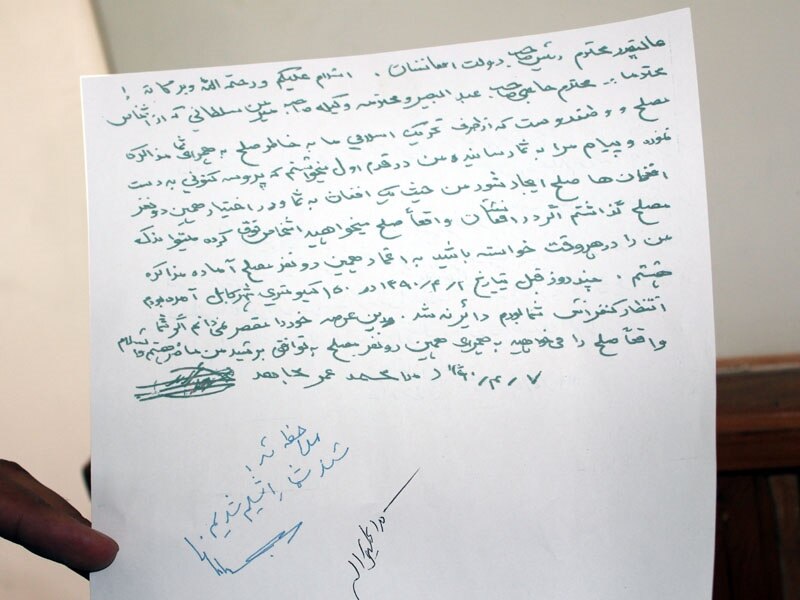 عالیقدر محترم رئیس صاحب دولت افغانستان . السلام علیکم و رحمته الله و برکاته !
محترما .. محترم حاجی صاحب عبدالبصیر و محترمه وکیله صاحب سلطانی که از اشخاص
مصلح و هستند که از طرف تحریک اسلامی ما به خاطر صلح به همرای شما مذاکره
نموده و پیام مرا به شما رسانیده من در قدم اول میخواستم که پروسه کنونی به دست
افغان ها صلح ایجاد شود من حیث یک افغان به شما در اختیار همین دو نفر
مصلح گذاشتم اگر در افغانستان واقعاً صلح میخواهید اشخاص فوق کرده میتواند که
من را در هر وقت خواسته باشید به اعتماد همین دو نفر مصلح آماده مذاکره
هستم . چند روز قبل بتاریخ ۱۳۹۰/۴/۲ در ۱۵۰ کیلومتری شهر کابل آمده بودم
انتظار کنفرانس شما بودم دائر نه شد . عرصه خود را مقصر نمی دانم اگر شما
واقعاً صلح را می خواهید به همرای همین دو نفر مصلح به توافق برسید من حاضر هستم والسلام
۱۳۹۰/۴/۷ ملا محمد عمر مجاهد
ملاحظه شد !
شما را تسلیم شدیم